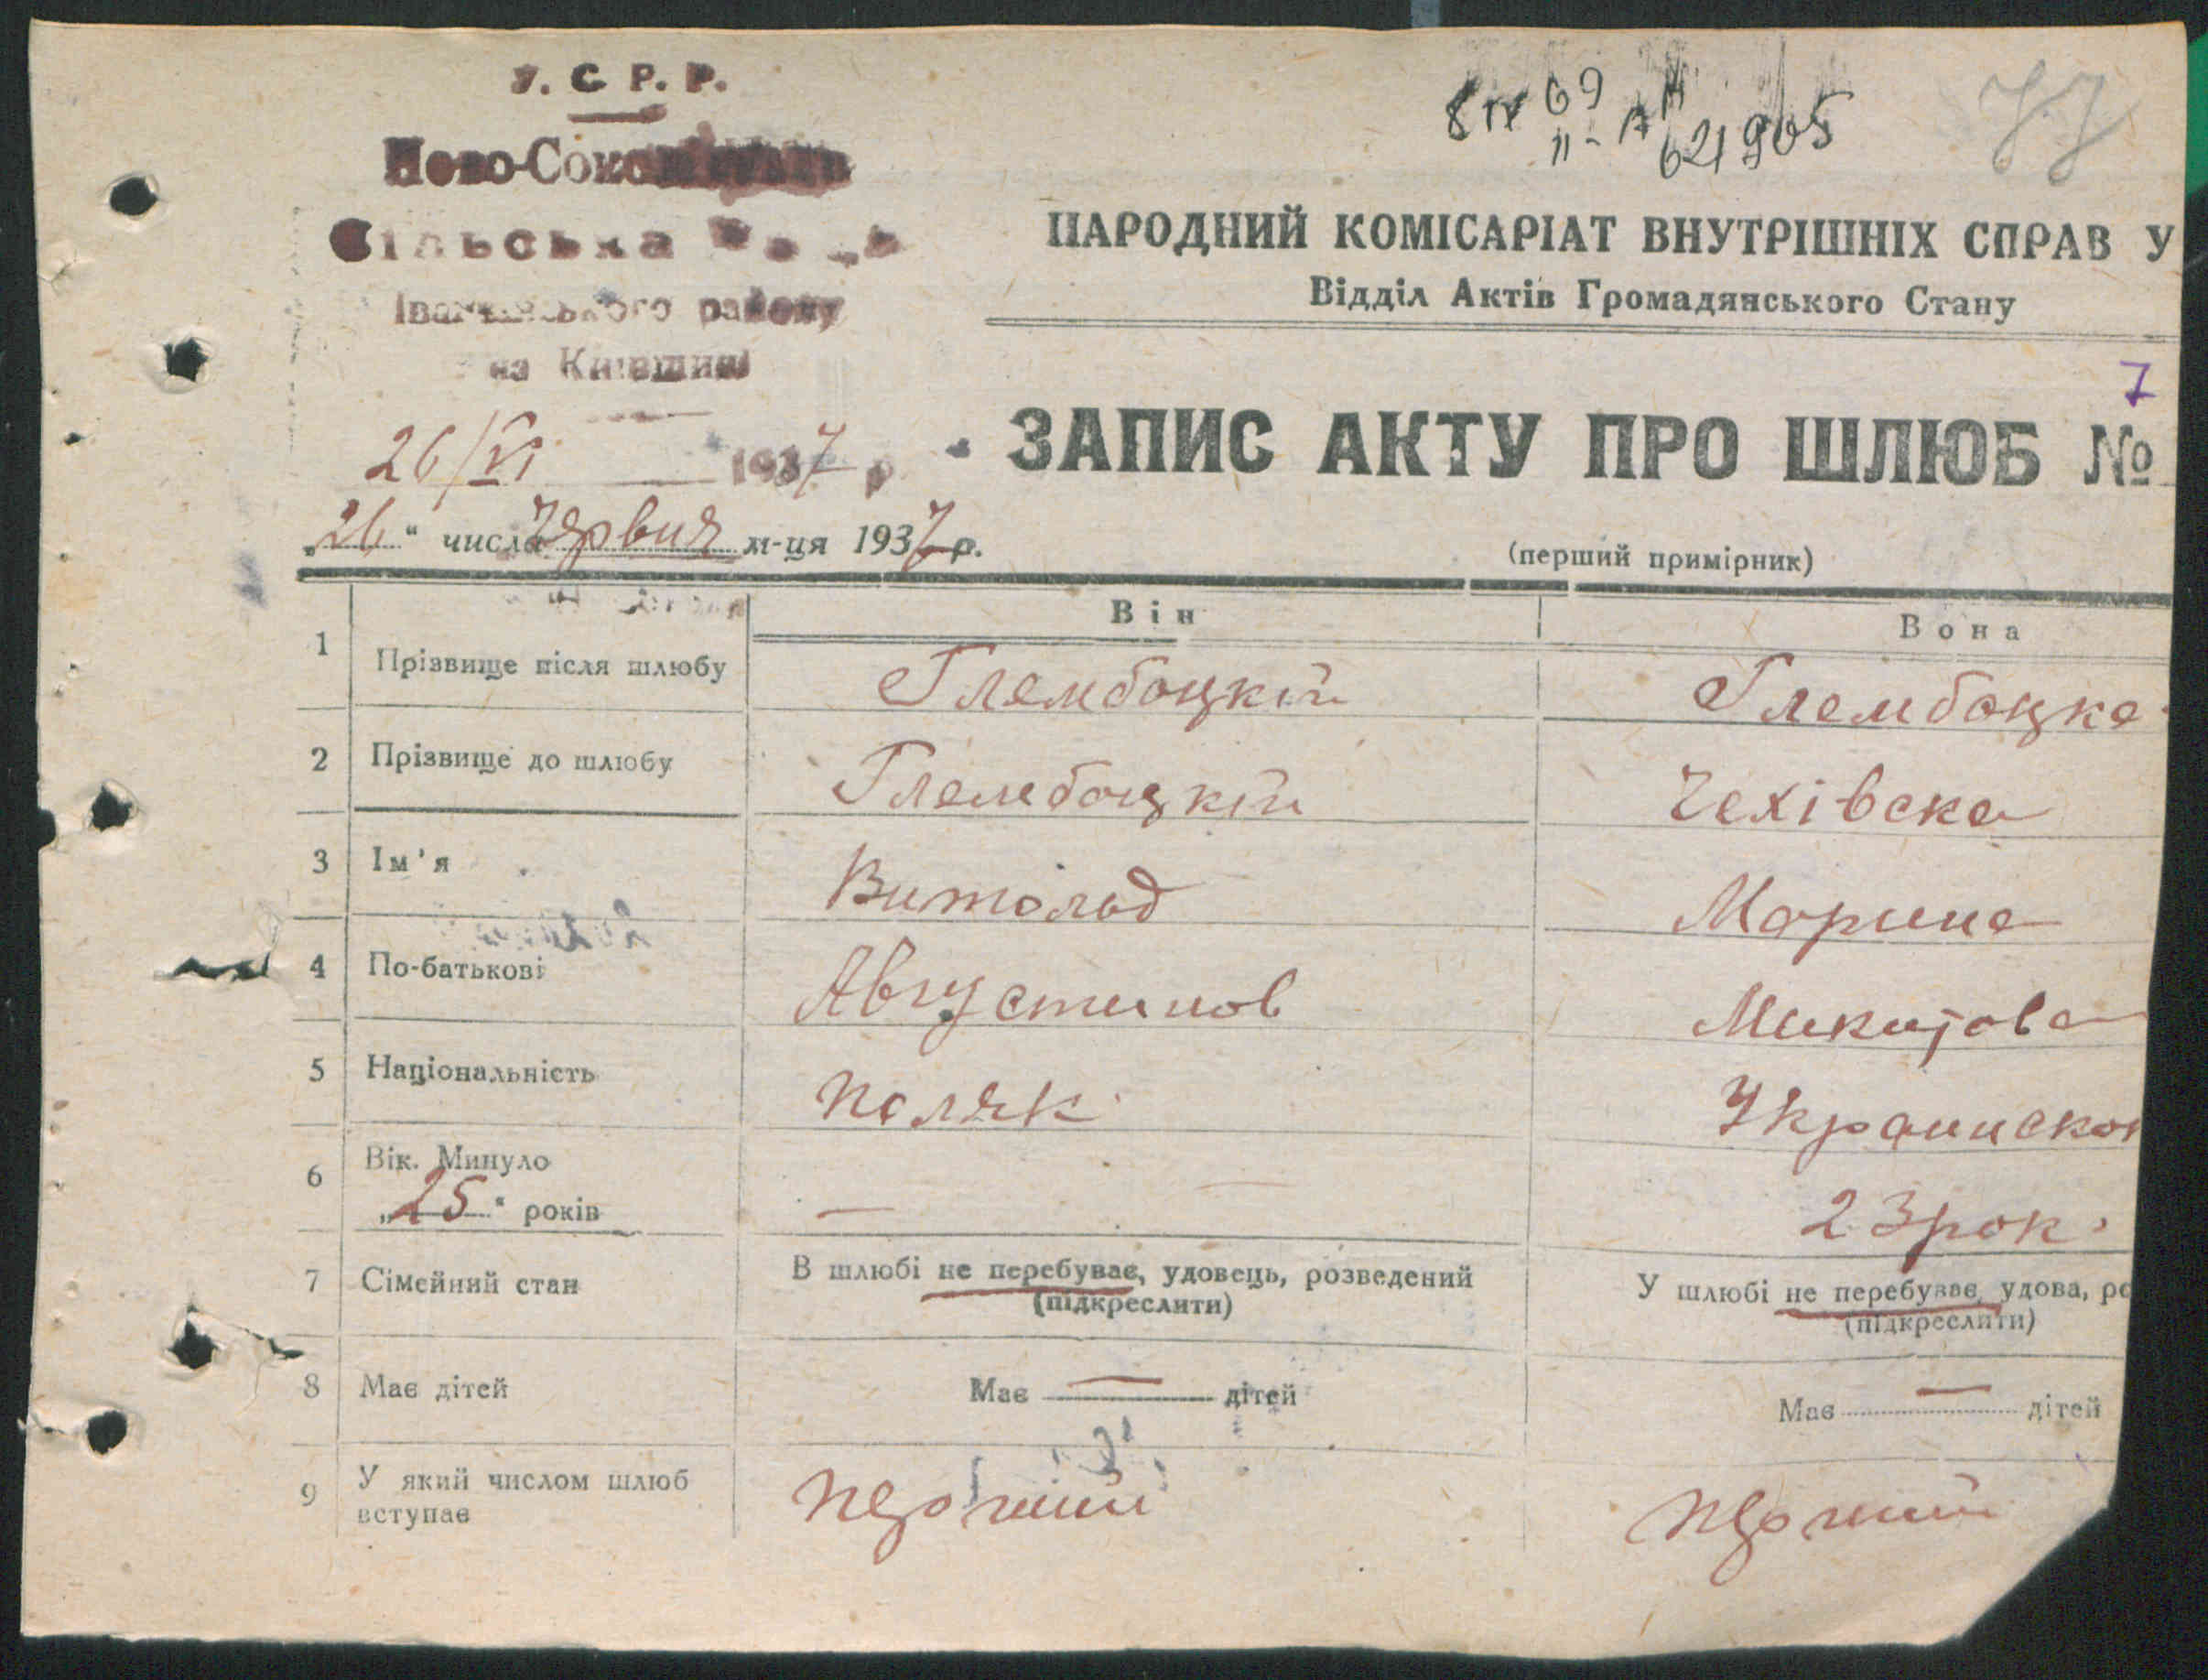 У. С. Р. Р.
Ново-
Сільська
району
на Київщині
26/VI 1937 р
8 IV 69
II-АМ
621905
77
НАРОДНИЙ КОМІСАРІАТ ВНУТРІШНІХ СПРАВ У
Відділ Актів Громадянського Стану
ЗАПИС АКТУ ПРО ШЛЮБ № 7
„26“ числа Червня м-ця 1937 р.
(перший примірник)
Він Вона
1 Прізвище після шлюбу Глембоцкій Глембоцка
2 Прізвище до шлюбу Глембоцкій Чехівска
3 Ім'я Витольд Марина
4 По-батькові Августинов Микитова
5 Національність поляк Украинскоі
6 Вік. Минуло „25“ років — 23 рок.
7 Сімейний стан В шлюбі не перебуває, удовець, розведений У шлюбі не перебуває, удова, ро
(підкреслити) (підкреслити)
8 Має дітей Має — дітей Має — дітей
9 У який числом шлюб вступає перший перший